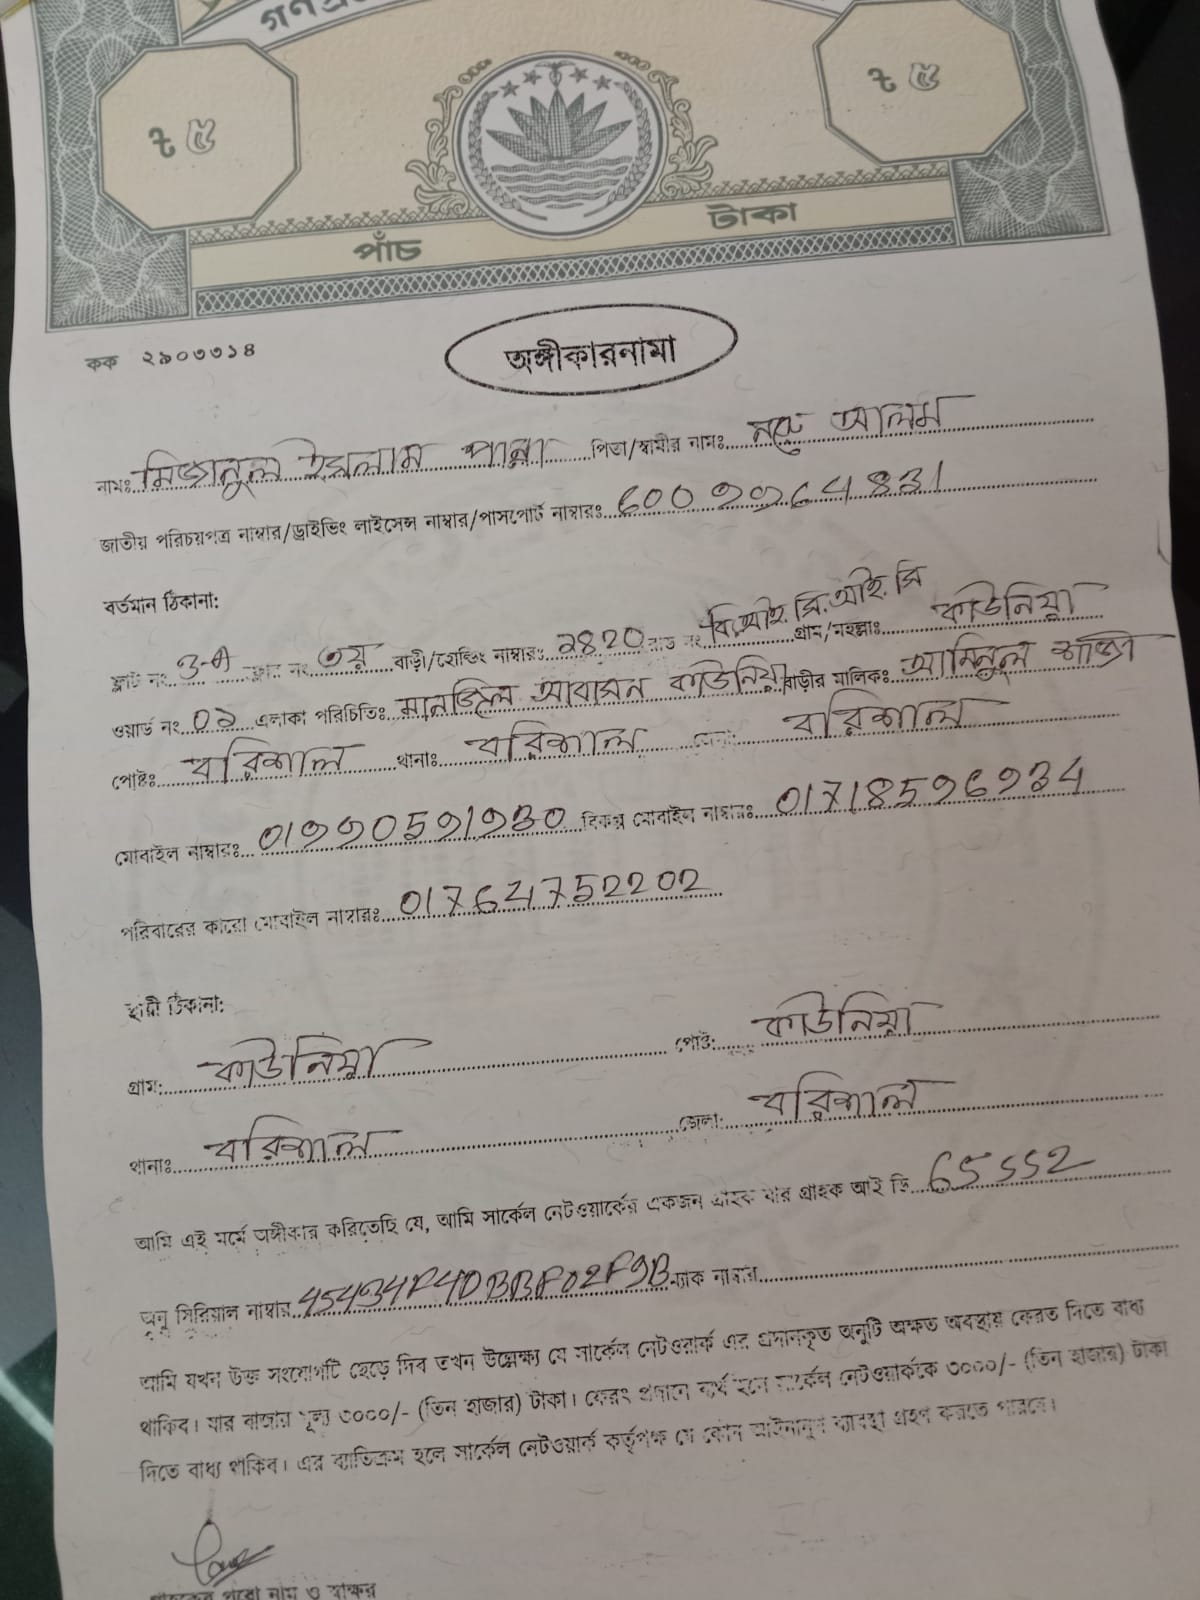 ৳ ৫
৳ ৫
পাঁচ টাকা
কক ২৯০৩৩১৪
অঙ্গীকারনামা
নামঃ মিজানুল ইসলাম পান্না পিতা/স্বামীর নামঃ নুরু আলম
জাতীয় পরিচয়পত্র নাম্বার/ড্রাইভিং লাইসেন্স নাম্বার/পাসপোর্ট নাম্বারঃ
বর্তমান ঠিকানা:
ফ্লাট নং ৩-এ ফ্লোর নং ৩য় বাড়ী/হোল্ডিং নাম্বারঃ রোড নং বি.আই.সি.আই.সি গ্রাম/মহল্লাঃ কাউনিয়া
ওয়ার্ড নং ০১ এলাকা পরিচিতিঃ মানজিল আবাসন কাউনিয়া বাড়ীর মালিকঃ আমিনুল
পোষ্টঃ বরিশাল থানাঃ বরিশাল জেলা: বরিশাল
মোবাইল নাম্বারঃ বিকল্প মোবাইল নাম্বারঃ
পরিবারের কারো মোবাইল নাম্বারঃ 01764752202
স্থায়ী ঠিকানা:
গ্রাম: কাউনিয়া পোষ্ট: কাউনিয়া
থানাঃ বরিশাল জেলা: বরিশাল
আমি এই মর্মে অঙ্গীকার করিতেছি যে, আমি সার্কেল নেটওয়ার্কের একজন গ্রাহক যার গ্রাহক আই ডি
অনু সিরিয়াল নাম্বার ম্যাক নাম্বার
আমি যখন উক্ত সংযোগটি ছেড়ে দিব তখন উল্লেক্ষ্য যে সার্কেল নেটওয়ার্ক এর প্রদানকৃত অনুটি অক্ষত অবস্থায় ফেরত দিতে বাধ্য
থাকিব। যার বাজার মূল্য ৩০০০/- (তিন হাজার) টাকা। ফেরৎ প্রদানে ব্যর্থ হলে সার্কেল নেটওয়ার্ককে ৩০০০/- (তিন হাজার) টাকা
দিতে বাধ্য থাকিব। এর ব্যতিক্রম হলে সার্কেল নেটওয়ার্ক কর্তৃপক্ষ যে কোন আইনানুগ ব্যবস্থা গ্রহণ করতে পারবে।
গ্রাহকের পুরো নাম ও স্বাক্ষর